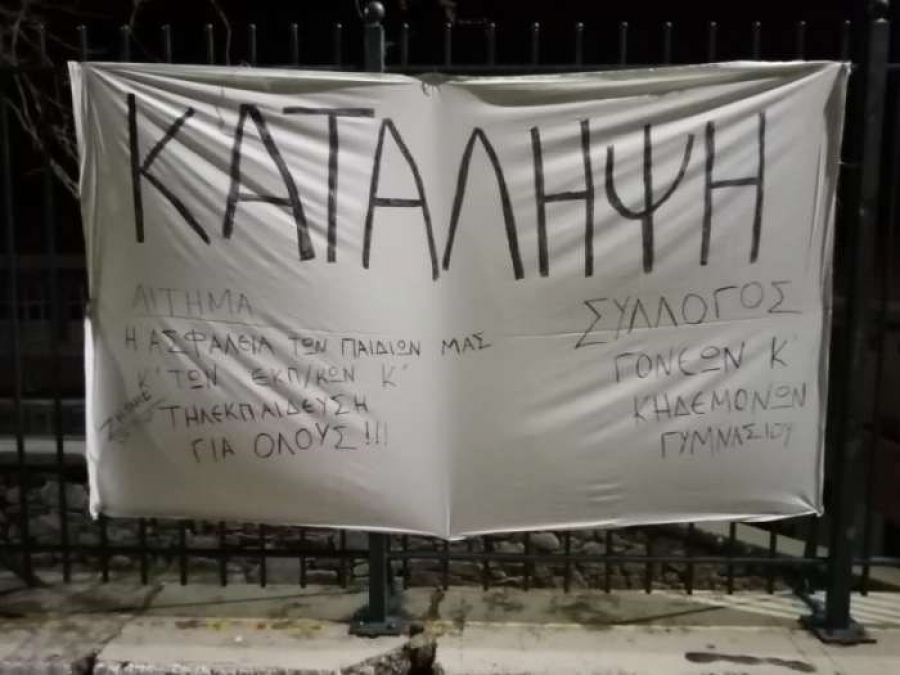 ΚΑΤΑΛΗΨΗ
ΑΙΤΗΜΑ
Η ΑΣΦΑΛΕΙΑ ΤΩΝ ΠΑΙΔΙΩΝ ΜΑΣ
Κ' ΤΩΝ ΕΚΠ/ΚΩΝ Κ'
ΤΗΛΕΚΠΑΙΔΕΥΣΗ
ΓΙΑ ΟΛΟΥΣ!!!
ΣΥΛΛΟΓΟΣ
ΓΟΝΕΩΝ Κ'
ΚΗΔΕΜΟΝΩΝ
ΓΥΜΝΑΣΙΟΥ